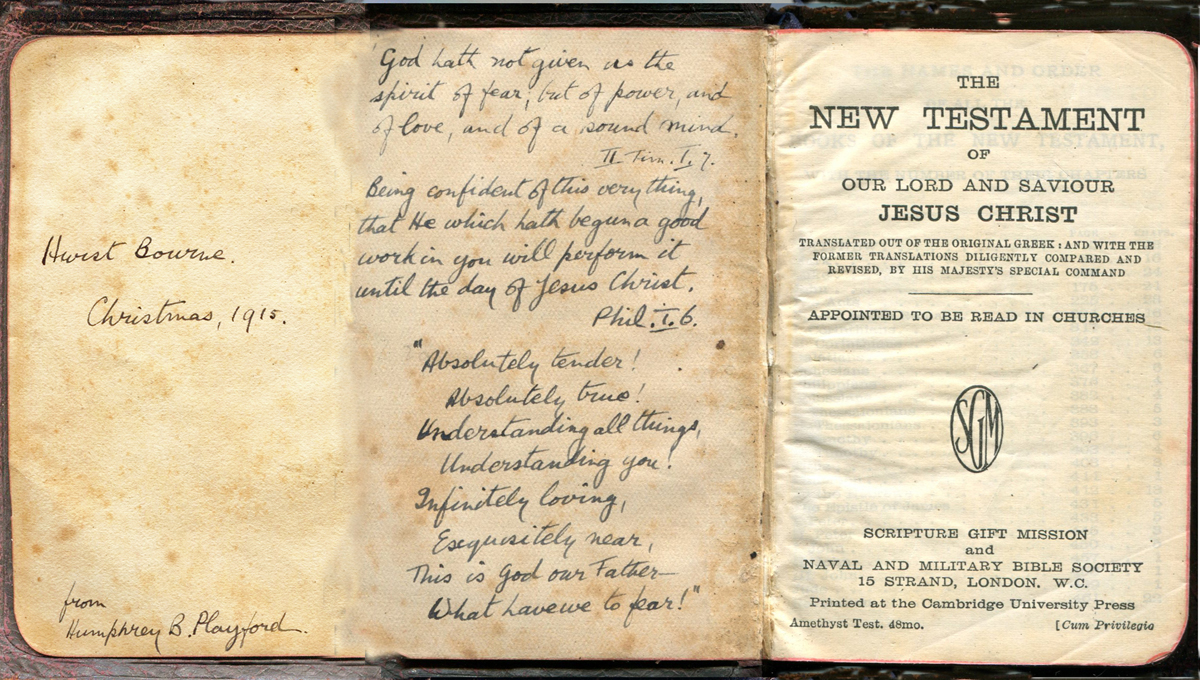 Hurst Bourne.
Christmas, 1915.
from
Humphrey B. Playford.
"God hath not given us the
spirit of fear; but of power, and
of love, and of a sound mind.
II Tim. I. 7.
Being confident of this very thing,
that He which hath begun a good
work in you will perform it
until the day of Jesus Christ.
Phil. I. 6.
"Absolutely tender!
Absolutely true!
Understanding all things,
Understanding you!
Infinitely loving,
Exquisitely near,
This is God our Father—
What have we to fear!"
THE
NEW TESTAMENT
OF
OUR LORD AND SAVIOUR
JESUS CHRIST
TRANSLATED OUT OF THE ORIGINAL GREEK: AND WITH THE
FORMER TRANSLATIONS DILIGENTLY COMPARED AND
REVISED, BY HIS MAJESTY'S SPECIAL COMMAND
APPOINTED TO BE READ IN CHURCHES
SGM
SCRIPTURE GIFT MISSION
and
NAVAL AND MILITARY BIBLE SOCIETY
15 STRAND, LONDON. W.C.
Printed at the Cambridge University Press
Amethyst Test. 48mo. [Cum Privilegio